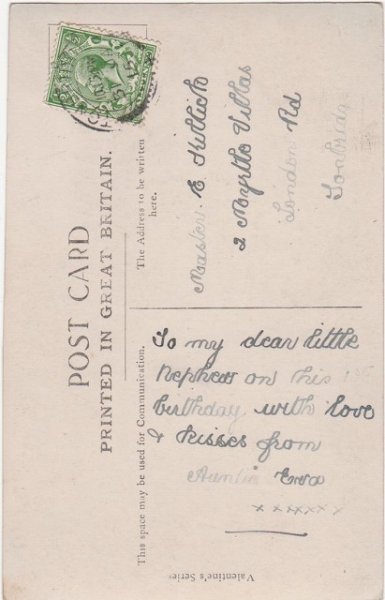 POST CARD
PRINTED IN GREAT BRITAIN.
This space may be used for Communication.
The Address to be written
here.
Master E
2 Myrtle Villas
London Rd
To my dear little
nephew on his 1st
birthday with love
& kisses from
Auntie Eva
x x x x x x
Valentine's Series